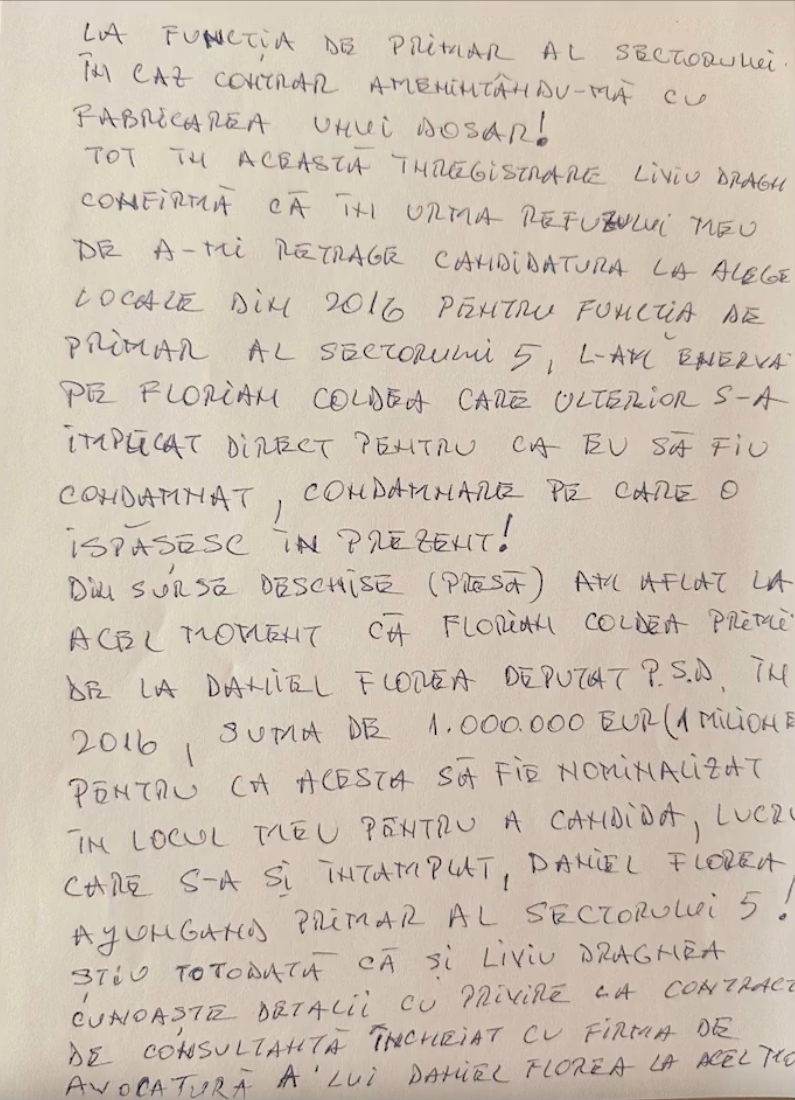 LA FUNCȚIA DE PRIMAR AL SECTORULUI.
ÎN CAZ CONTRAR AMENINTÂNDU-MĂ CU
FABRICAREA UNUI DOSAR!
TOT ÎN ACEASTĂ ÎNREGISTRARE LIVIU DRAGN
CONFIRMĂ CĂ ÎN URMA REFUZULUI MEU
DE A-MI RETRAGE CANDIDATURA LA ALEGE
LOCALE DIN 2016 PENTRU FUNCȚIA DE
PRIMAR AL SECTORULUI 5, L-AM ENERVA
PE FLORIAN COLDEA CARE ULTERIOR S-A
IMPLICAT DIRECT PENTRU CA EU SĂ FIU
CONDAMNAT, CONDAMNARE PE CARE O
ISPĂSESC ÎN PREZENT!
DIN SURSE DESCHISE (PRESĂ) AM AFLAT LA
ACEL MOMENT CĂ FLORIAN COLDEA PRIMI
DE LA DANIEL FLOREA DEPUTAT P.S.D. ÎN
2016, SUMA DE 1.000.000 EUR (1 MILIONE
PENTRU CA ACESTA SĂ FIE NOMINALIZAT
ÎN LOCUL MEU PENTRU A CANDIDA, LUCRU
CARE S-A ȘI ÎNTAMPLAT, DANIEL FLOREA
AJUNGAND PRIMAR AL SECTORULUI 5!
ȘTIU TOTODATĂ CĂ ȘI LIVIU DRAGNEA
CUNOAȘTE DETALII CU PRIVIRE LA CONTRACT
DE CONSULTANȚĂ ÎNCHEIAT CU FIRMA DE
AVOCATURĂ A LUI DANIEL FLOREA LA ACEL MO